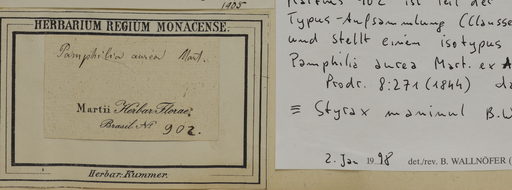 1905
HERBARIUM REGIUM MONACENSE.
Pamphilia aurea Mart.
Martii Herbar. Florae
Brasil. No 902.
Herbar. Kummer.
902 ist Teil der
Typus-Aufsammlung (Claussen
und stellt einen isotypus
Pamphilia aurea Mart. ex A
Prodr. 8:271 (1844)
≡ Styrax maninul B.W
2. Jan 1998 det./rev. B. WALLNÖFER (